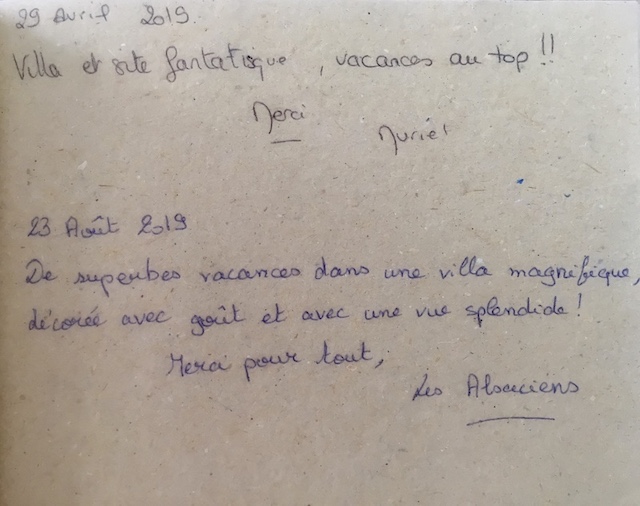 29 Avril 2019.
Villa et site fantatisque, vacances au top !!
Merci
Muriel
23 Août 2019
De superbes vacances dans une villa magnifique,
décorée avec goût et avec une vue splendide !
Merci pour tout,
Les Alsaciens